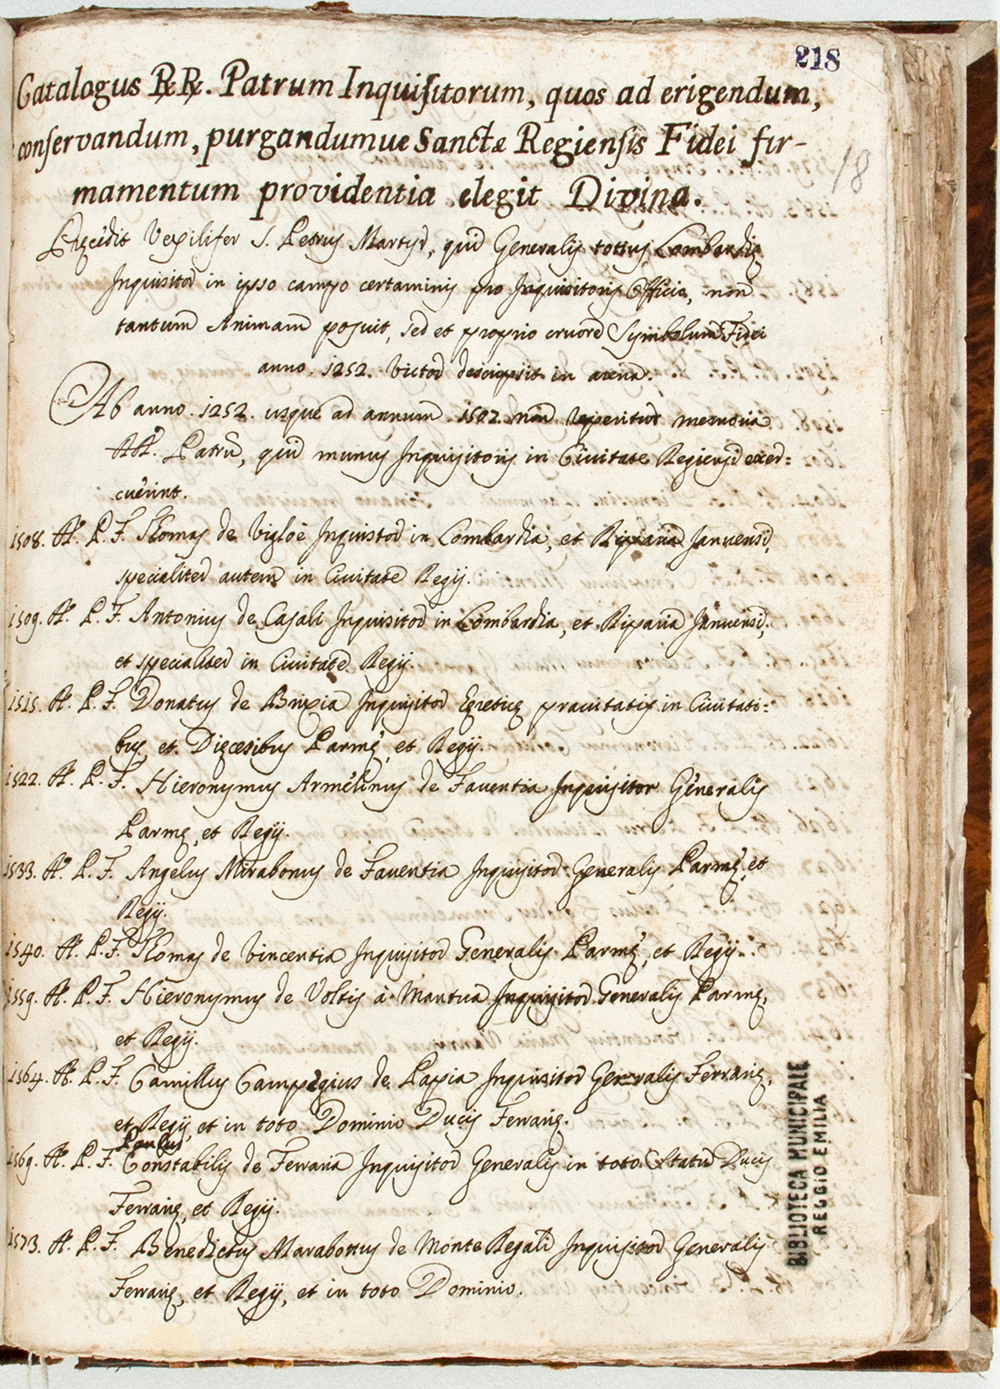 218
Catalogus RR. Patrum Inquisitorum, quos ad erigendum,
conservandum, purgandumue Sanctæ Regiensis Fidei fir-
mamentum providentia elegit Divina.
18
Præcedit Vexilifer S. Petrus Martyr, qui Generalis totius Lombardiæ
Inquisitor in ipso campo certaminis pro Inquisitoris Officio, non
tantum Animam posuit, sed et proprio cruore Symbolum Fidei
anno. 1252. Victor descripsit in arena.
Ab anno. 1252. usque ad annum. 1507. non reperitur memoria
RR. Patrū, qui munus Inquisitoris in Civitate Regiensi exer=
cuerint.
1508. R. P. F. Thomas de Vigloe Inquistor in Lombardia, et Riparia Januensi,
specialiter autem in Civitate Regij.
1509. R. P. F. Antonius de Casali Inquisitor in Lombardia, et Riparia Januensi,
et specialiter in Civitate Regij.
1515. R. P. F. Donatus de Brixia Inquisitor Ereticæ pravitatis in Civitati=
bus et Diæcesibus Parmæ, et Regij.
1522. R. P. F. Hieronymus Armelinus de Faventia Inquisitor Generalis
Parmæ, et Regij.
1533. R. P. F. Angelus Mirabonus de Faventia Inquisitor Generalis Parmæ, et
Regij.
1540. R. P. F. Thomas de Vincentia Inquisitor Generalis Parmæ, et Regij.
1559. R. P. F. Hieronymus de Voltis à Mantua Inquisitor Generalis Parmæ,
et Regij.
1564. R. P. F. Camillus Campegius de Papia Inquisitor Generalis Ferrariæ,
et Regij, et in toto Dominio Ducis Ferrariæ.
Paulus
1569. R. P. F. Constabilis de Ferraria Inquisitor Generalis in toto Statu Ducis
Ferrariæ, et Regij.
1573. R. P. F. Benedictus Marabottus de Monte Regali Inquisitor Generalis
Ferrariæ, et Regij, et in toto Dominio.
BIBLIOTECA MUNICIPALE
REGGIO EMILIA